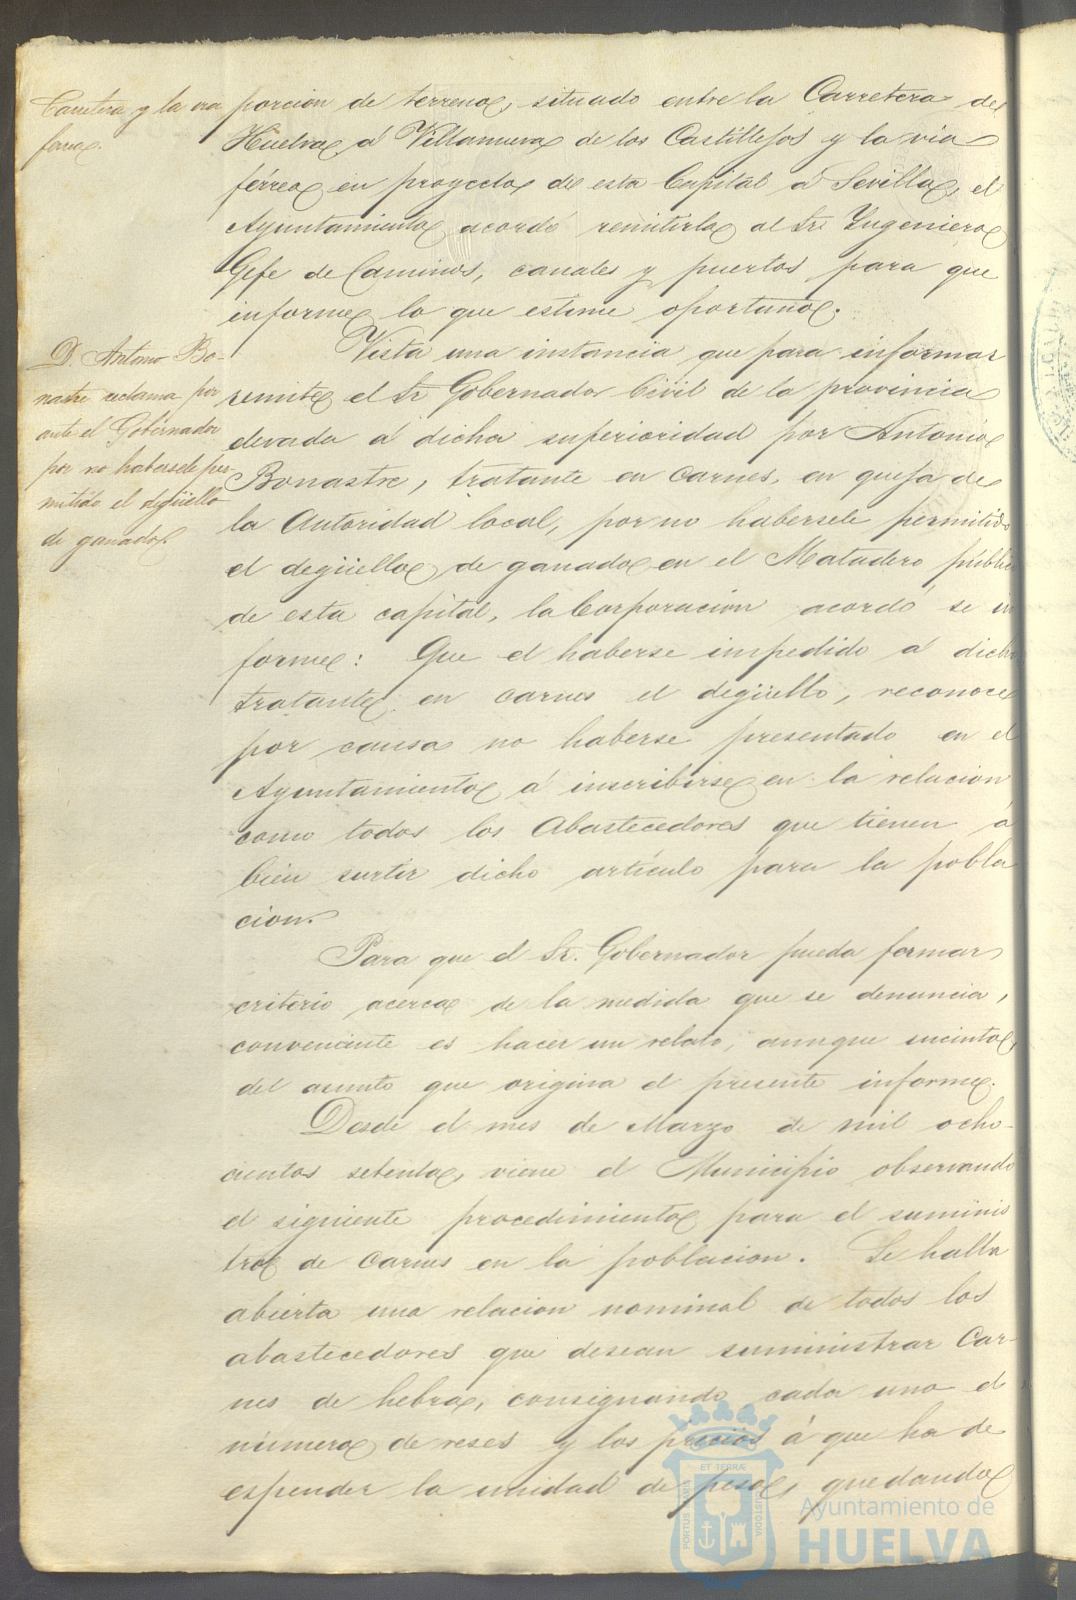 Carretera y la via
ferrea.
porcion de terreno, situado entre la Carretera de
Huelva á Villanueva de los Castillejos y la via
férrea en proyecto de esta Capital á Sevilla, el
Ayuntamiento acordó remitirla al Sr. Yngeniero
Gefe de Caminos, canales y puertos para que
informe lo que estime oportuno.
D. Antonio Bo-
nastre reclama por
ante el Gobernador
por no habersele per-
mitido el degüello
de ganado.
Vista una instancia que para informar
remite el Sr Gobernador Civil de la provincia
elevada á dicha superioridad por Antonio
Bonastre, tratante en carnes, en queja de
la Autoridad local, por no habersele permitido
el degüello de ganado en el Matadero públic
de esta capital, la Corporacion acordó se in
forme: Que el haberse impedido á dicho
tratante en carnes el degüello, reconoce
por causa no haberse presentado en el
Ayuntamiento á inscribirse en la relacion
como todos los Abastecedores que tienen a
bien surtir dicho artículo para la pobla
cion.
Para que el Sr. Gobernador pueda formar
criterio acerca de la medida que se denuncia,
conveniente es hacer un relato, aunque sucinto,
del asunto que origina el presente informe.
Desde el mes de Marzo de mil ocho-
cientos setenta, viene el Municipio observando
el siguiente procedimiento para el suminis
tro de carnes en la poblacion. Se halla
abierta una relacion nominal de todos los
abastecedores que desean suministrar Car-
nes de hebra, consignando cada uno el
número de reses y los precios á que ha de
espender la unidad de peso, quedando
PORTUS MARIS
ET TERRÆ
CUSTODIA
Ayuntamiento de
HUELVA